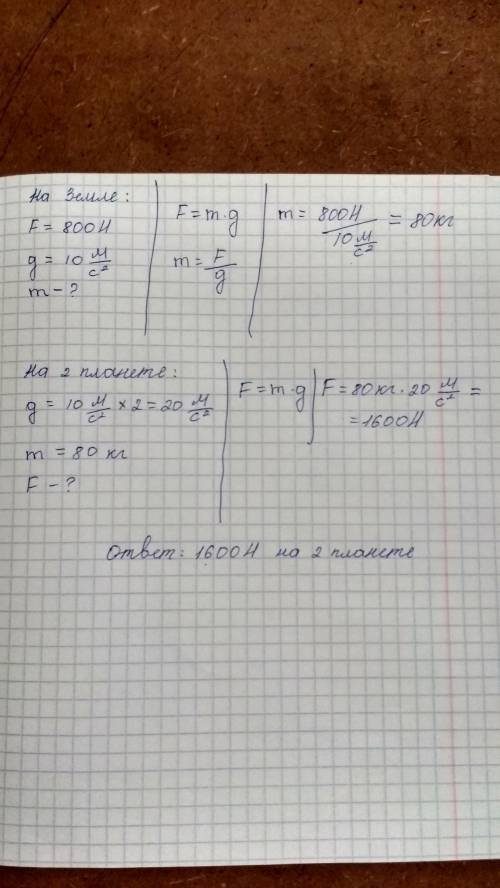 На Земле:
F = 800Н
g = 10 м/с²
m - ?
F = m·g
m = F/g
m = 800Н / 10 м/с² = 80кг
На 2 планете:
g = 10 м/с² × 2 = 20 м/с²
m = 80 кг
F - ?
F = m·g
F = 80кг·20 м/с² =
= 1600Н
Ответ: 1600Н на 2 планете